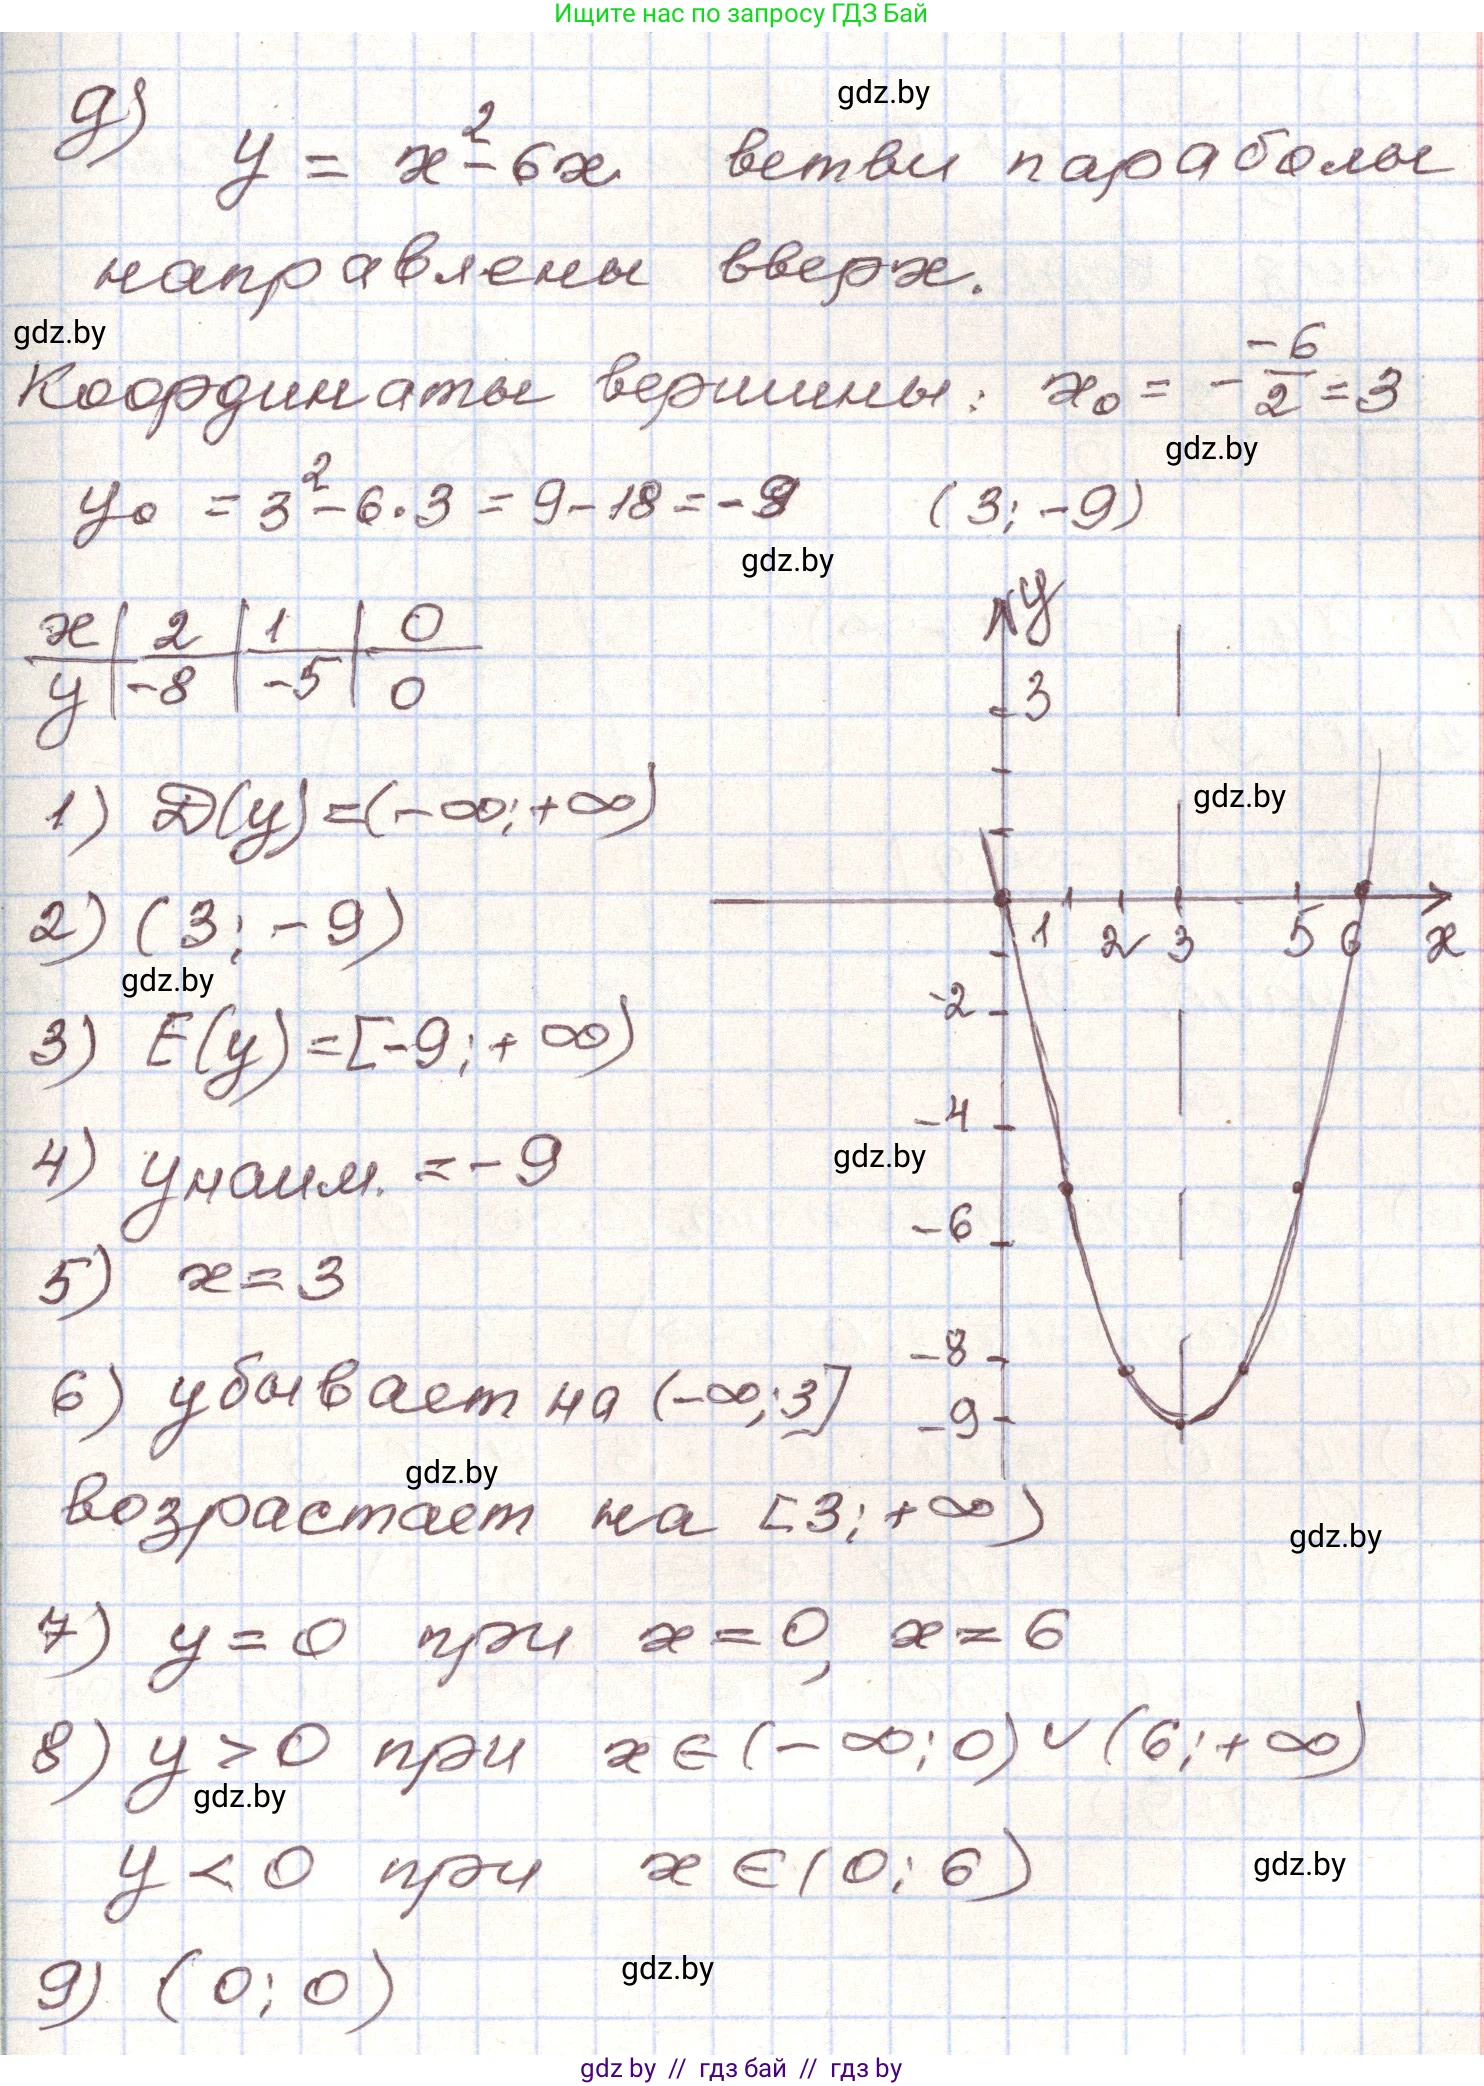 Ищите нас по запросу ГДЗ Бай
gdz.by
д) y = x² - 6x ветви параболы
направлены вверх.
gdz.by
Координаты вершины: x₀ = - -6/2 = 3
gdz.by
y₀ = 3² - 6·3 = 9 - 18 = -9 (3; -9)
gdz.by
x | 2 | 1 | 0
y | -8 | -5 | 0
1) D(y) = (-∞; +∞)
2) (3; -9)
gdz.by
3) E(y) = [-9; +∞)
4) y наим. = -9
5) x = 3
6) убывает на (-∞; 3]
gdz.by
возрастает на [3; +∞)
y
3
gdz.by
1 2 3 5 6 x
-2
-4
gdz.by
-6
-8
-9
gdz.by
7) y = 0 при x = 0, x = 6
8) y > 0 при x ∈ (-∞; 0) ∪ (6; +∞)
gdz.by
y < 0 при x ∈ (0; 6)
gdz.by
9) (0; 0)
gdz.by
gdz by // гдз бай // гдз by